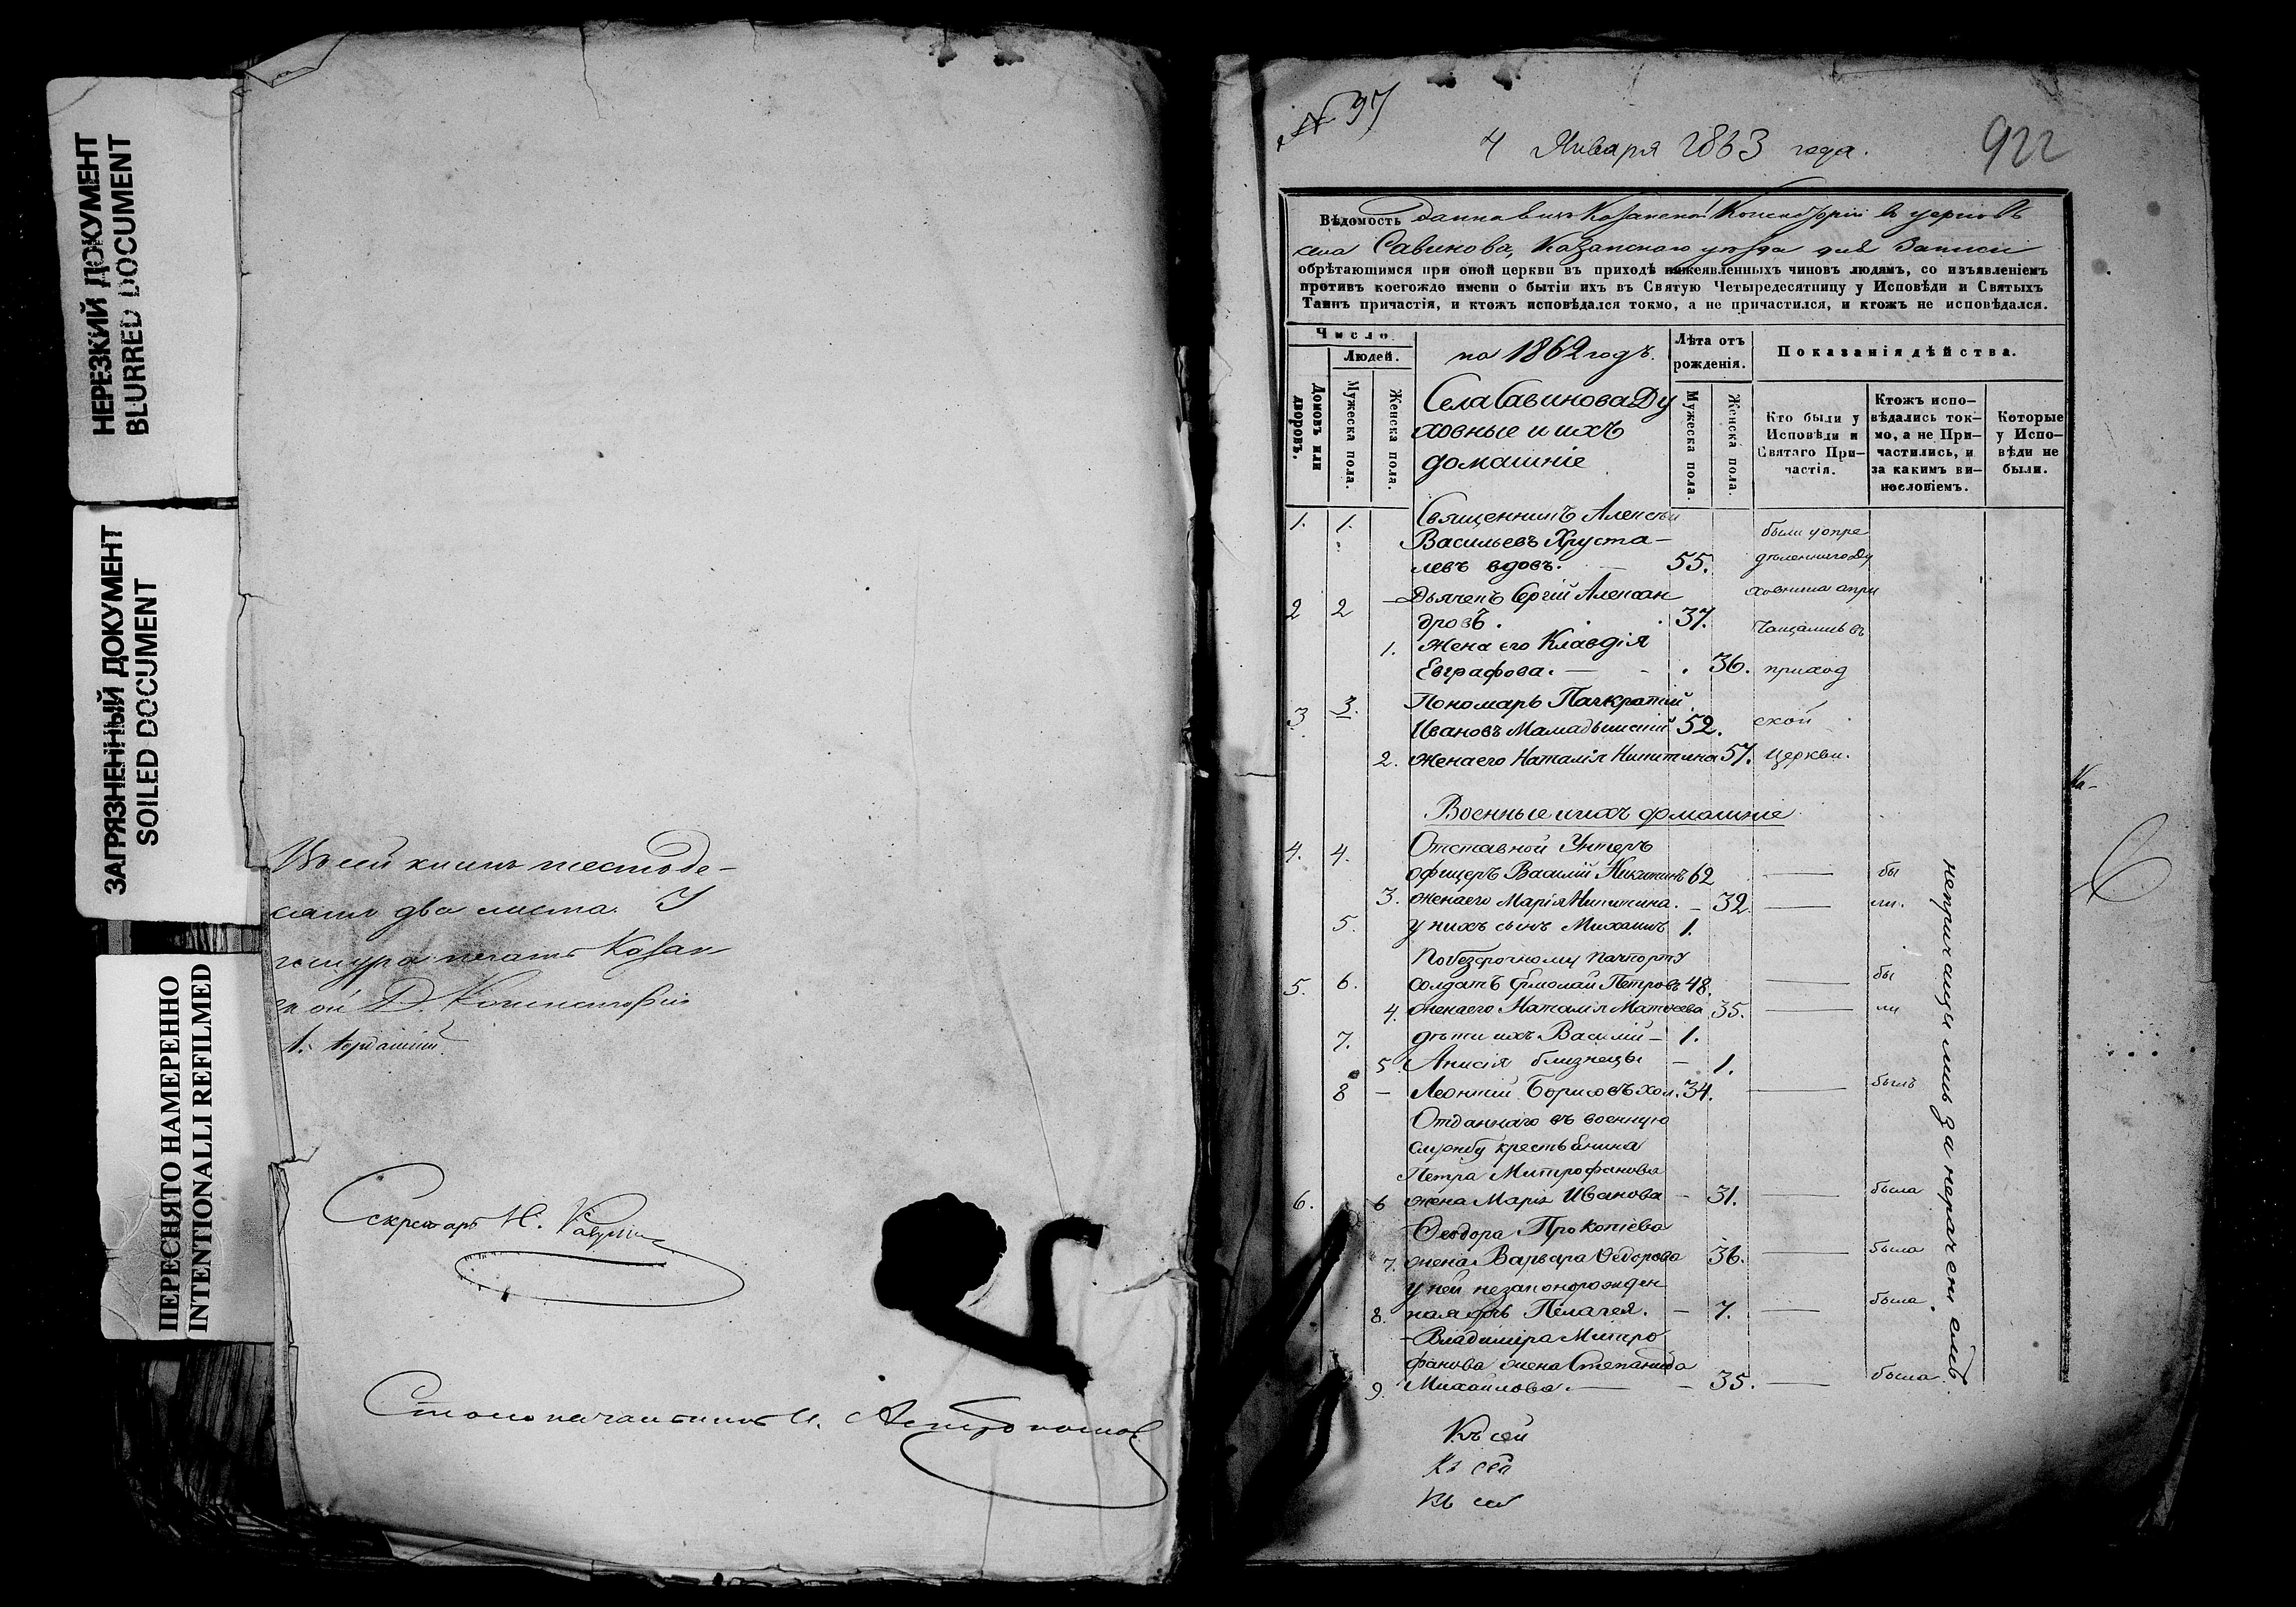 НЕРЕЗКИЙ ДОКУМЕНТ
BLURRED DOCUMENT
ЗАГРЯЗНЕННЫЙ ДОКУМЕНТ
SOILED DOCUMENT
ПЕРЕСНЯТО НАМЕРЕННО
INTENTIONALLI REFILMED
Въ сей книгѣ шестьде-
сятъ два листа. У
шнура печать Казан
ской Д. Консисторіи
Секретарь Н.
Столоначальникъ И. Астрономовъ
№ 97
4 Января 1863 года.
922
Вѣдомость данная изъ Казанской Консисторіи въ церковь
села Савинова, Казанскаго уѣзда для записи
обрѣтающимся при оной церкви въ приходѣ нижеявленныхъ чиновъ людямъ, со изъявленіемъ
противъ коегождо имени о бытіи ихъ въ Святую Четыредесятницу у Исповѣди и Святыхъ
Таинъ причастія, и ктожъ исповѣдался токмо, а не причастился, и ктожъ не исповѣдался.
Число
Домовъ или дворовъ.
Людей.
Мужеска пола.
Женска пола.
на 1862 годъ.
Села Савинова Ду
ховные и ихъ
домашніе
Лѣта отъ рожденія.
Мужеска пола.
Женска пола.
Показанія дѣйства.
Кто были у Исповѣди и Святаго При-частія.
Ктожъ испо-вѣдались ток-мо, а не При-частились, и за какимъ ви-нословіемъ.
Которые у Испо-вѣди не были.
1. 1. Священникъ Алексѣй
Васильевъ Хруста-
левъ вдовъ. 55.
были у опре
дѣленнаго Ду
ховника а при
чащались въ
приход
ской
церкви.
2 2 Дьячекъ Сергій Алексан
дровъ. 37.
1. Жена его Клавдія
Евграфова. 36.
3 3. Пономарь Панкратий
Ивановъ Мамадышский 52.
2. Жена его Наталія Никитина 57.
Военные и ихъ домашніе
4. 4. Отставной Унтеръ
офицеръ Василій Никитинъ 62 — бы
3. Жена его Марія Никитина. 32 — ли.
5. у нихъ сынъ Михаилъ 1.
По безсрочному пачпорту
5. 6. солдатъ Ермолай Петровъ 48. — бы
4. Жена его Наталія Матвеева 35. — ли
7. дѣти ихъ Василій 1.
5. Анисія близнецы 1.
8 — Леонтий Борисовъ хол. 34. — былъ
Отданнаго въ военную
службу крестьянина
Петра Митрофанова
6. 6 жена Марія Иванова 31. — была
Ѳеодора Прокопіева
7. жена Варвара Ѳедорова 36. — была
у ней незаконорожден
8. ная дочь Пелагея. 7. — была
Владиміра Митро
фанова жена Степанида
9. Михайлова. 35. — была
непричащались за нерачениемъ
Къ сей
Къ сей
Къ сей